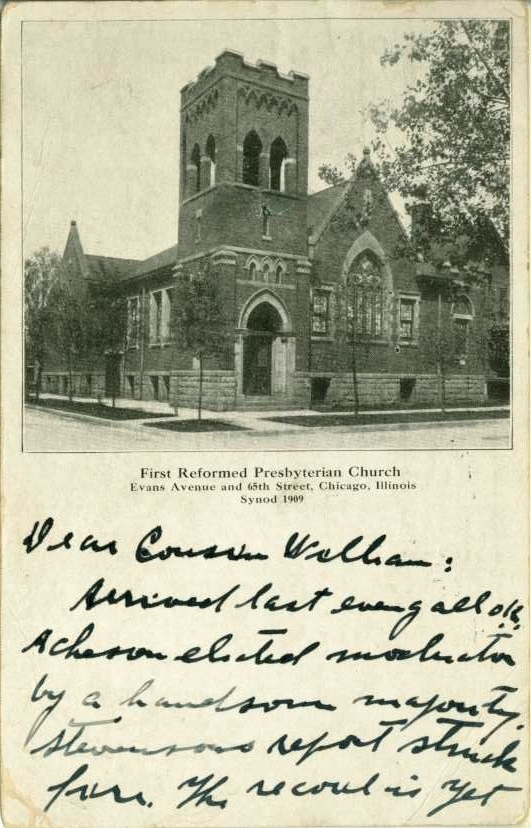 First Reformed Presbyterian Church
Evans Avenue and 65th Street, Chicago, Illinois
Synod 1909
Dear Cousin William:
Arrived last eveng all o.k.
Acheson elected moderator
by a handsom majority.
Stevensons report struck
fire. The record is yet